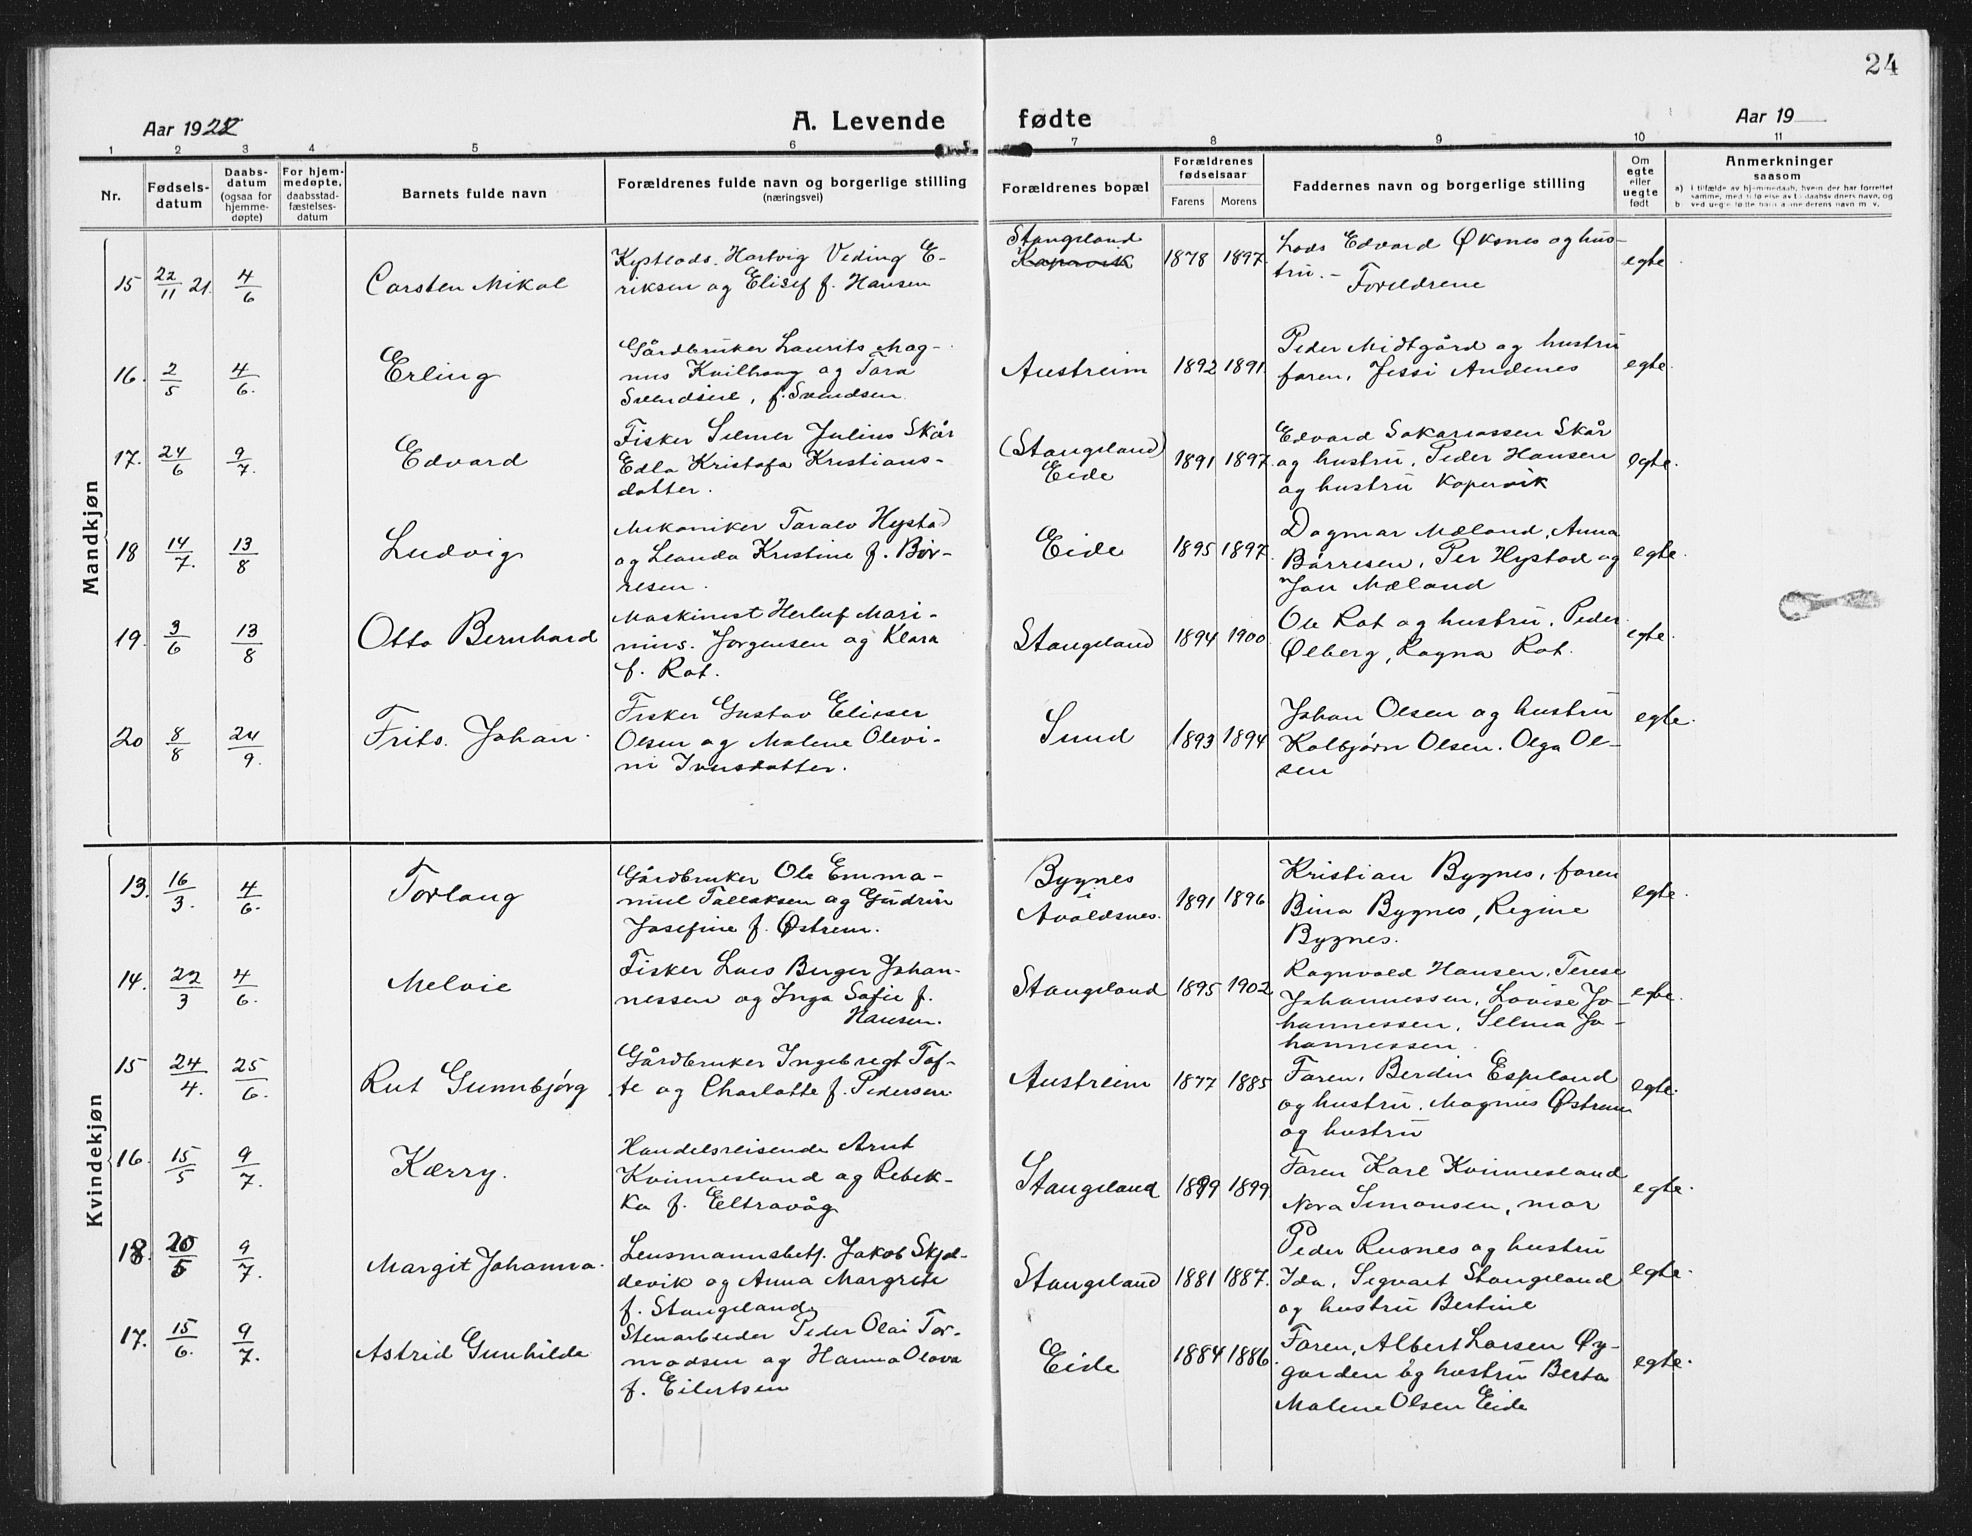 24
Aar 1922 A. Levende fødte Aar 19
1 2 3 4 5 6 7 8 9 10 11
Nr. Fødselsdatum Daabsdatum (ogsaa for hjemmedøpte) For hjemmedøpte, daabsstadfæstelsesdatum Barnets fulde navn Forældrenes fulde navn og borgerlige stilling (næringsvei) Forældrenes bopæl Forældrenes fødselsaar Farens Morens Faddernes navn og borgerlige stilling Om egte eller uegte født Anmerkninger saasom
Mandkjøn
15 22/11 21. 4/6 Carsten Mikal
Kystlods. Hartvig Veding E-
riksen og Elisef f. Hansen
Stangeland
Kopervik
1878 1897.
Lods Edvard Øksnes og hus-
tru. - Foreldrene
egte
16. 2/5 4/6. Erling
Gårdbruker Laurits Mag-
nus Kvilhaug og Tora
Svendsine, f. Svendsen
Austreim 1892 1891.
Peder Midtgård og hustru
faren, Jessi Andenes
egte.
17. 24/6 9/7. Edvard
Fisker Selmer Julius Skår
Edla Kristofa Kristians-
datter.
(Stangeland)
Eide
1891 1897.
Edvard Sakariassen Skår
og hustru, Peder Hansen
og hustru Kopervik
egte.
18 14/7. 13/8 Ludvig
Mekaniker Taralv Hystad
og Leanda Kristine f. Bør-
resen.
Eide 1895 1897.
Dagmar Mæland, Anna
Børresen, Per Hystad og
Jan Mæland
egte.
19. 3/6 13/8 Otto Bernhard
Maskinist Herluf Mari-
nius. Jørgensen og Klara
f. Rot.
Stangeland 1894 1900.
Ole Rot og hustru, Peder
Ølberg, Ragna Rot.
egte.
20 8/8 24/9. Frits. Johan.
Fisker Gustav Elieser
Olsen og Malene Olevi-
ni Iversdatter.
Sund 1893 1894
Johan Olsen og hustru
Kolbjørn Olsen. Olga Ol-
sen
egte.
Kvindekjøn
13. 16/3. 4/6. Torlaug
Gårdbruker Ole Emma-
niul Tallaksen og Gudrun
Josefine f. Østrem.
Bygnes
i
Avaldsnes.
1891 1896
Kristian Bygnes, faren
Bina Bygnes, Regine
Bygnes.
egte.
14. 22/3 4/6. Melvie
Fisker Lars Berger Johan-
nessen og Inga Sofie f.
Hansen.
Stangeland 1895 1902
Ragnvald Hansen, Terese
Johannessen, Lovise Jo-
hannessen, Selma Jo-
hannessen.
egte.
15 24/4. 25/6. Rut Gunnbjórg
Gårdbruker Ingebregt Tof-
te og Charlotte f. Pedersen
Austreim 1877 1885
Faren, Berdin Espeland
og hustru, Magnus Østrem
og hustru
egte.
16. 15/5 9/7. Kærry.
Handelsreisende Arnt
Kvinnesland og Rebek-
ka f. Eltravåg
Stangeland 1899 1899.
Faren Karl Kvinnesland
Nora Simonsen, mor
egte.
18. 20/5 9/7. Margit Johanna.
Lensmannsbetj. Jakob Skjol-
devik og Anna Margrete
f. Stangeland
Stangeland 1881 1887.
Peder Rusnes og hustru
Ida, Segvart Stangeland
og hustru Bertine
egte.
17. 15/6. 9/7. Astrid Gunhilde
Stenarbeider Peder Olai Tor-
madsen og Hanna Olava
f. Eilertsen
Eide 1884 1886.
Faren, Albert Larsen Øy-
garden og hustru Berta
Malene Olsen Eide
egte.